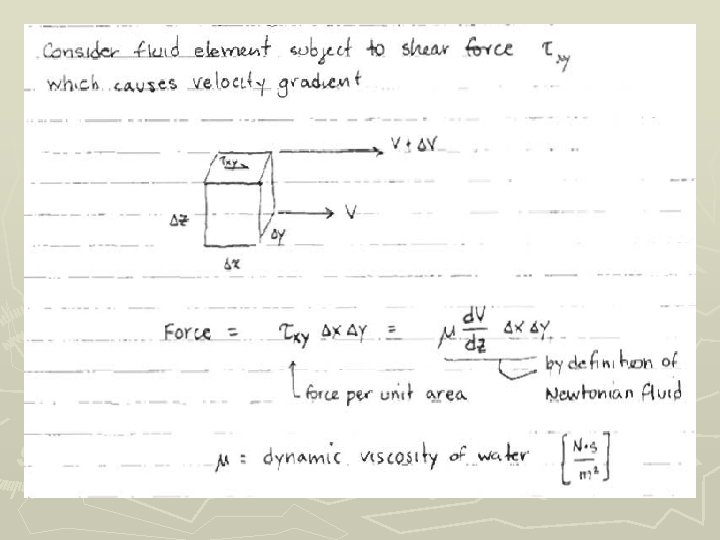 Consider fluid element subject to shear force τxy
which causes velocity gradient
τxy
V + ΔV
V
Δz
Δy
Δx
Force = τxy Δx Δy = μ dV/dz Δx Δy
by definition of
Newtonian fluid
force per unit area
μ = dynamic viscosity of water [N·s/m²]